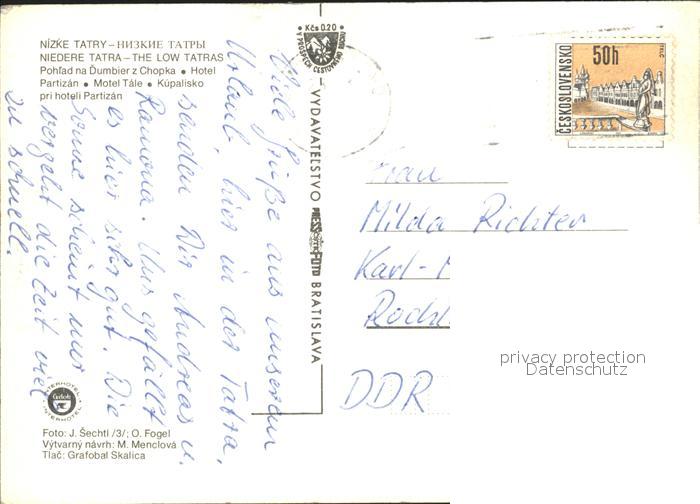 NÍZKE TATRY – НИЗКИЕ ТАТРЫ
NIEDERE TATRA – THE LOW TATRAS
Pohľad na Ďumbier z Chopka • Hotel
Partizán • Motel Tále • Kúpalisko
pri hoteli Partizán
Kčs 0,20
V PROSPECH CESTOVNÉHO RUCHU
VYDAVATEĽSTVO PRESSFOTO BRATISLAVA
Viele Grüße aus unserem
Urlaub, hier in der Tatra,
senden Dir Andreas u.
Ramona. Uns gefällt
es hier sehr gut. Die
Sonne scheint nur
vergeht die Zeit viel
zu schnell.
ČESKOSLOVENSKO
50h
TELČ
Frau
Milda Richter
Karl-
DDR
INTERHOTEL
INTERHOTEL
Foto: J. Šechtl /3/; O. Fogel
Výtvarný návrh: M. Menclová
Tlač: Grafobal Skalica
privacy protection
Datenschutz